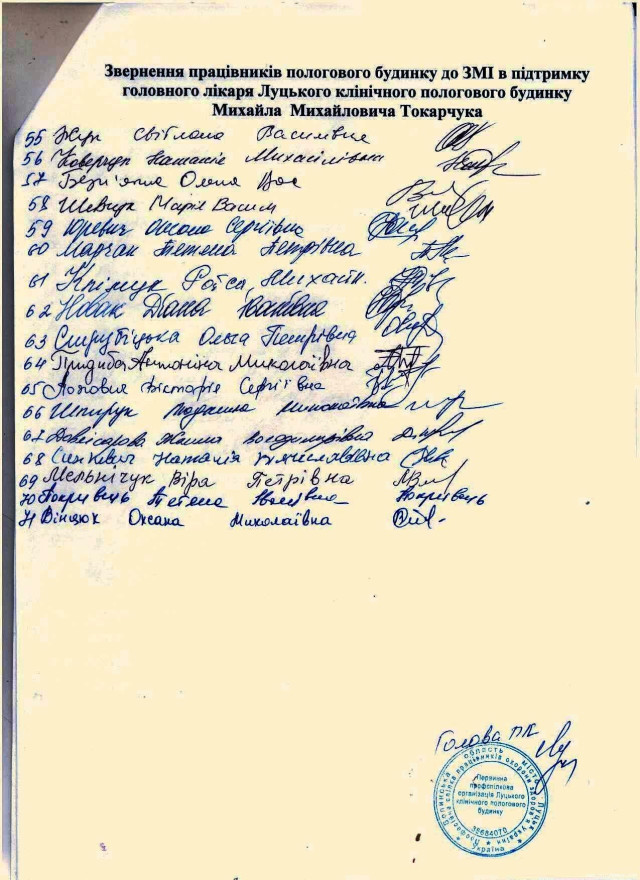 Звернення працівників пологового будинку до ЗМІ в підтримку
головного лікаря Луцького клінічного пологового будинку
Михайла Михайловича Токарчука
55 Жук Світлана Василівна
56 Наталія Михайлівна
57 Олена
58 Шевчук Марія Васил
59 Юревич Оксана Сергіївна
60 Марчак Тетяна Петрівна
61 Климук Раїса Михайл.
62 Новак Діана Іванівна
63 Ольга Петрівна
64 Придиба Антоніна Миколаївна
65 Вікторія Сергіївна
66 Миколаївна
67 Жанна Володимирівна
68 Синкевич Наталія Вячеславівна
69 Мельничук Віра Петрівна
70 Покривець Тетяна Покривець
71 Вінцюк Оксана Миколаївна
Голова ПК
Волинська область місто Луцьк
Професійна спілка працівників охорони здоров'я України
Первинна
профспілкова
організація Луцького
клінічного пологового
будинку
35684070
Україна